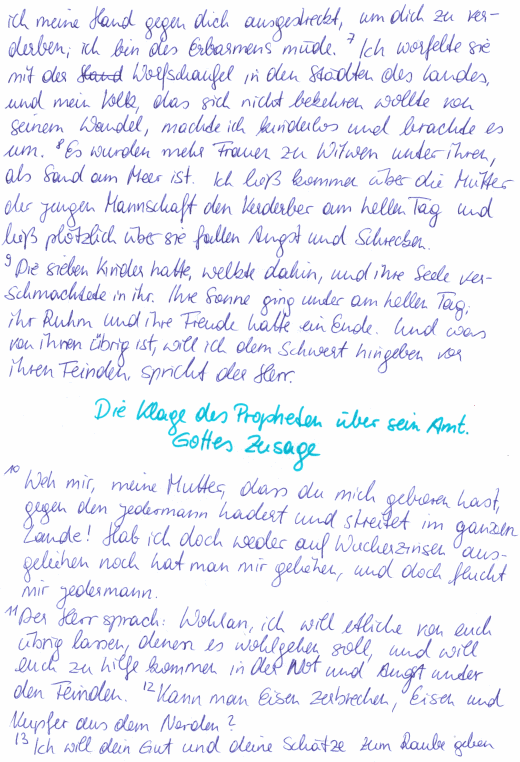 ich meine Hand gegen dich ausgestreckt, um dich zu ver-
derben; ich bin des Erbarmens müde. 7 Ich worfelte sie
mit der Hand Worfschaufel in den Städten des Landes,
und mein Volk, das sich nicht bekehren wollte von
seinem Wandel, machte ich kinderlos und brachte es
um. 8 Es wurden mehr Frauen zu Witwen unter ihnen,
als Sand am Meer ist. Ich ließ kommen über die Mütter
der jungen Mannschaft den Verderber am hellen Tag und
ließ plötzlich über sie fallen Angst und Schrecken.
9 Die sieben Kinder hatte, welkte dahin, und ihre Seele ver-
schmachtete in ihr. Ihre Sonne ging unter am hellen Tag;
ihr Ruhm und ihre Freude hatte ein Ende. Und was
von ihnen übrig ist, will ich dem Schwert hingeben vor
ihren Feinden, spricht der Herr.
Die Klage des Propheten über sein Amt.
Gottes Zusage
10 Weh mir, meine Mutter, dass du mich geboren hast,
gegen den jedermann hadert und streitet im ganzen
Lande! Hab ich doch weder auf Wucherzinsen aus-
geliehen noch hat man mir geliehen, und doch flucht
mir jedermann.
11 Der Herr sprach: Wohlan, ich will etliche von euch
übrig lassen, denen es wohlgehen soll, und will
euch zu Hilfe kommen in der Not und Angst unter
den Feinden. 12 Kann man Eisen zerbrechen, Eisen und
Kupfer aus dem Norden?
13 Ich will dein Gut und deine Schätze zum Raube geben